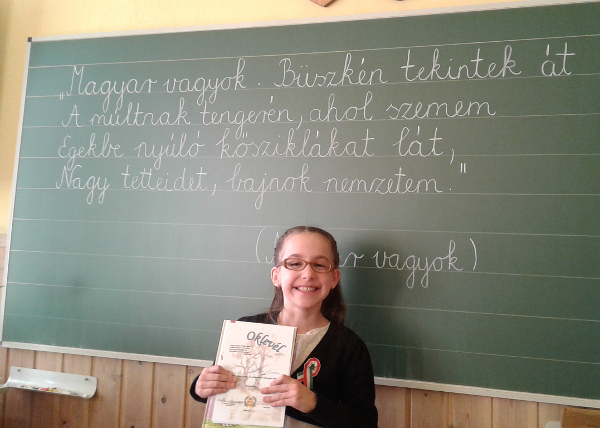 „Magyar vagyok. Büszkén tekintek át
A múltnak tengerén, ahol szemem
Egekbe nyúló kősziklákat lát,
Nagy tetteidet, bajnok nemzetem."
vagyok)
Oklevél